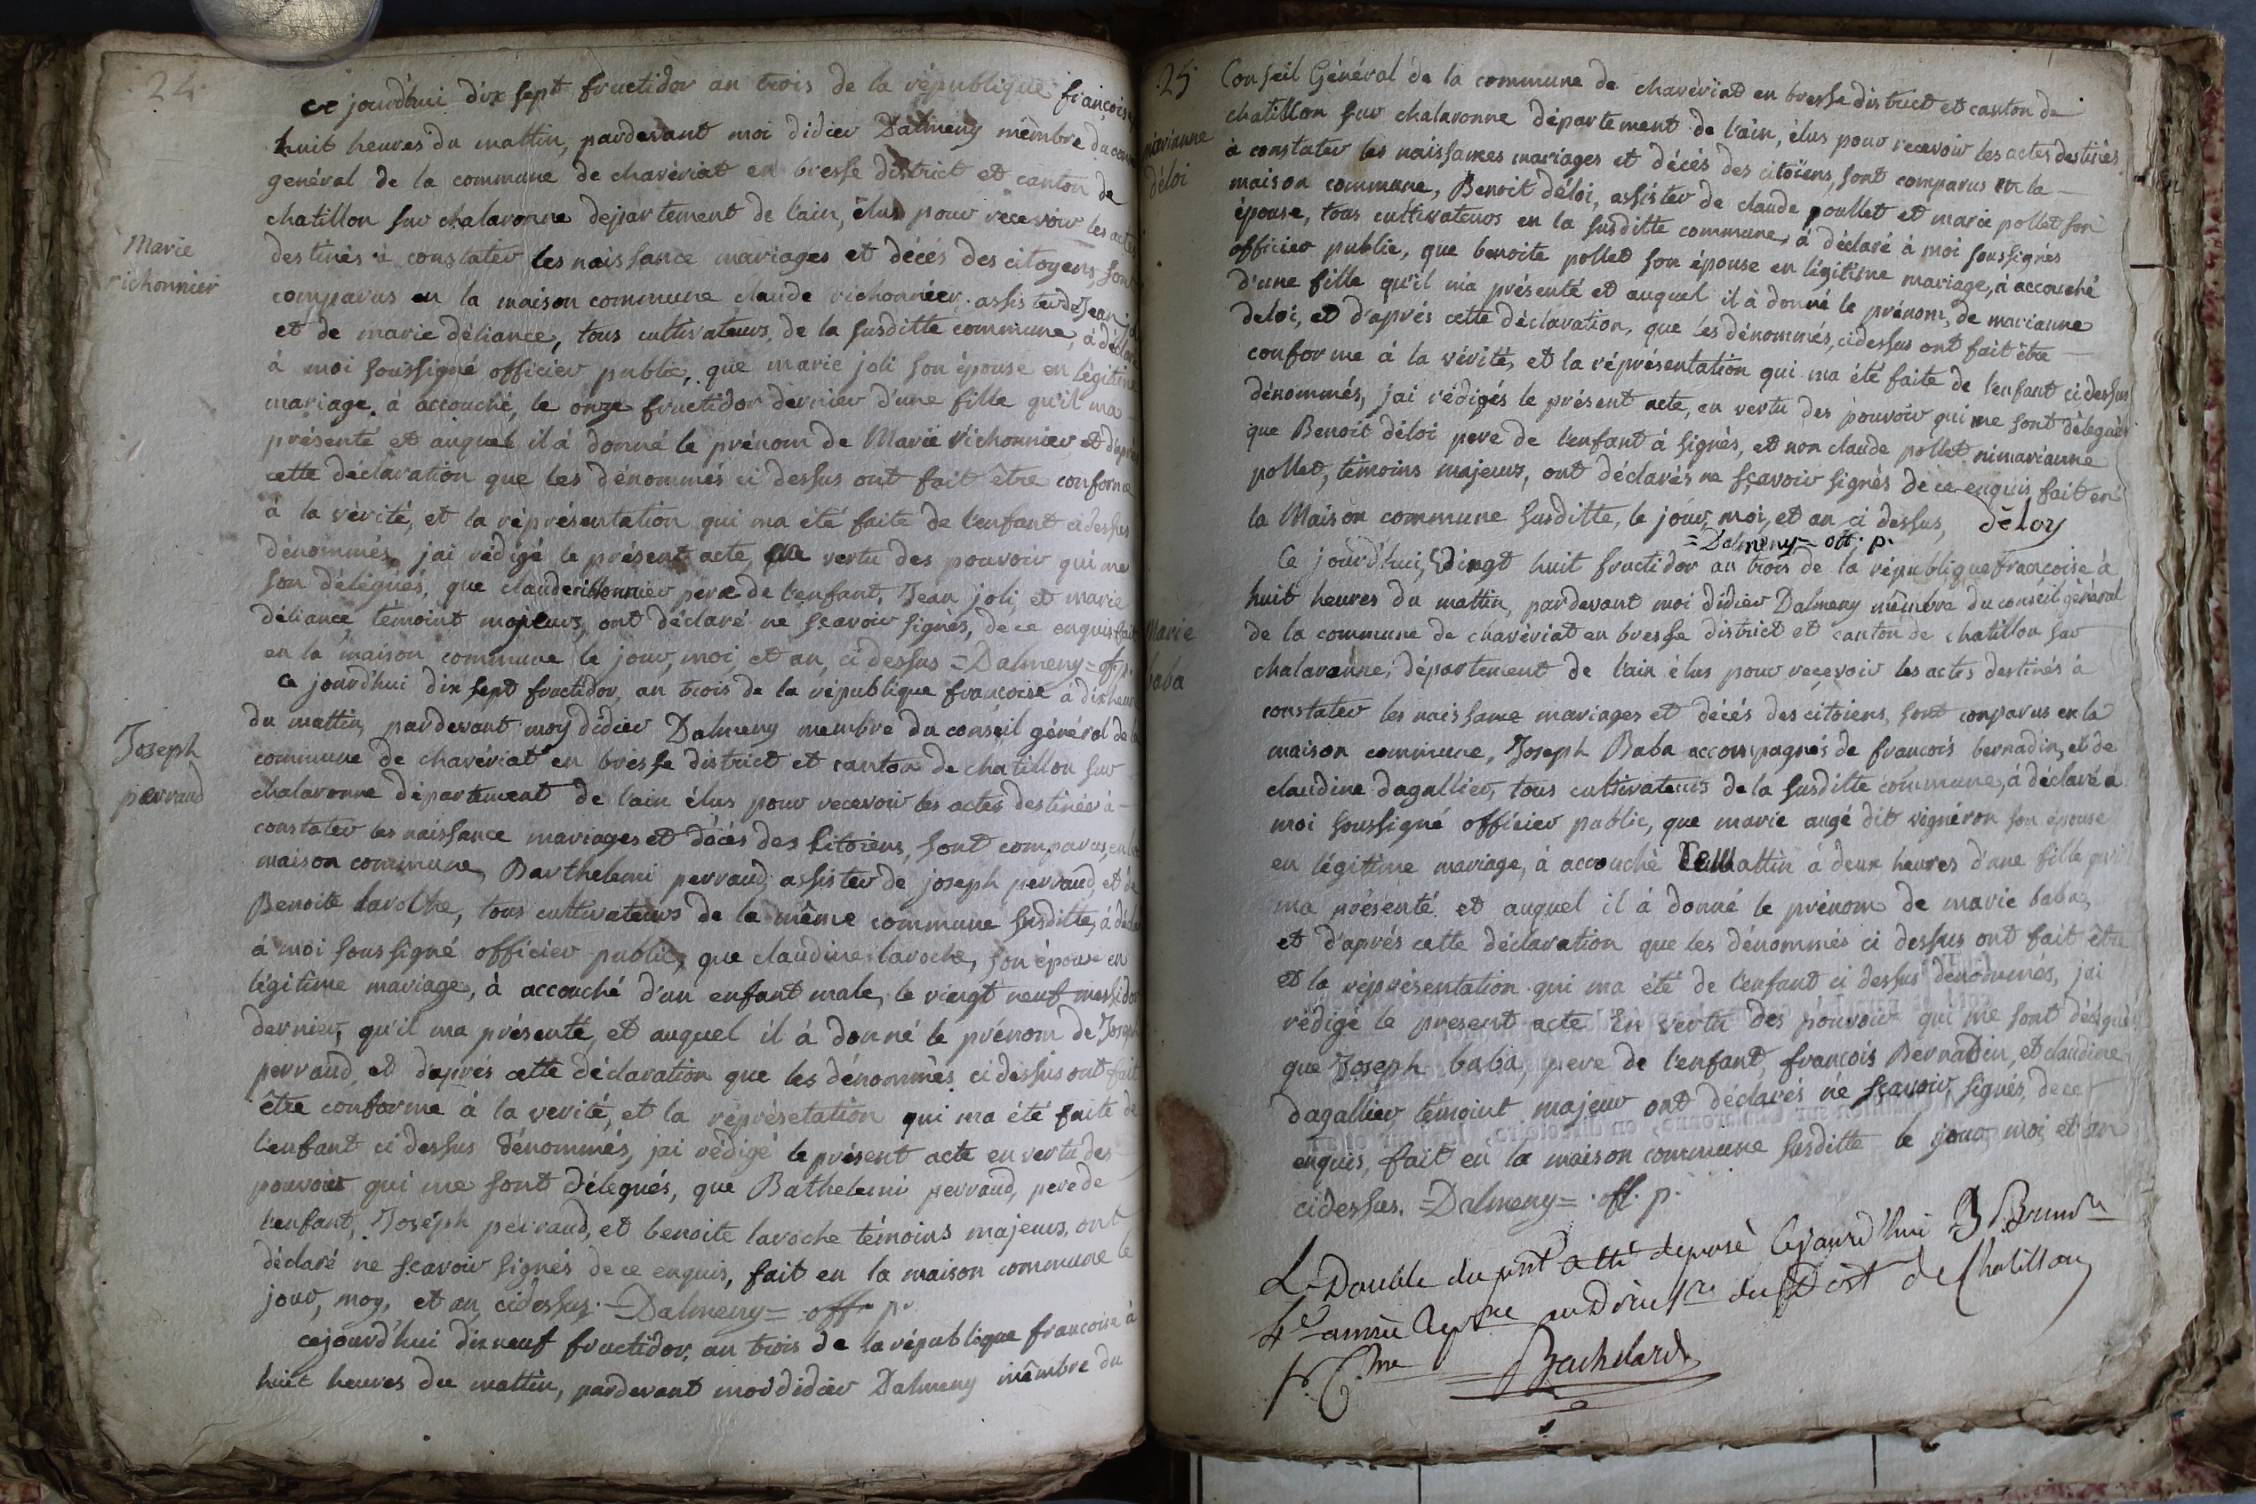 24.
ce jourdhui dix sept fructidor an trois de la république françoise
huit heures du mattin, pardevant moi didier Dalmeny mêmbre du
genéral de la commune de chavériat en bresse district et canton de
chatillon sur chalaronne departement de lain, élus pour recevoir les actes
Marie
richonnier
destinés à constater les naissance mariages et décés des citoyens, sont
comparus en la maison commune claude richonnier assister de Jean joli
et de marie déliance, tous cultivateurs de la susditte commune, à déclaré
à moi soussigné officier public, que marie joli son épouse en légitime
mariage à accouché, le onze fructidor dernier d'une fille qu'il ma
présenté et auquel il à donné le prénom de Marie richonnier, et d'après
cette déclaration que les dénommés ci dessus ont fait être conforme
à la vérité, et la réprésentation qui ma été faite de l'enfant ci dessus
dénommés, jai rédigé le présent acte, en vertu des pouvoir qui me
son délegués, que claude richonnier pere de l'enfant, Jean joli et marie
déliance témoint majeurs, ont déclaré ne sçavoir signés, de ce enquis fait
en la maison commune le jour, moi, et an, ci dessus =Dalmeny= off. p.
Joseph
perraud
Ce jourd'hui dix sept fructidor, an trois de la république françoise à dix heures
du mattin, pardevant moy didier Dalmeny membre du conseil général de la
commune de chavériat en bresse district et canton de chatillon sur
chalaronne département de l'ain élus pour recevoir les actes destinée à
constater les naissance mariages et décés des Citoiens, sont comparus, en la
maison commune, Barthelemi perraud, assister de joseph perraud, et de
Benoite laroche, tous cultivateurs de la même commune susditte, à déclaré
à moi soussigné officier public, que claudine laroche, son épouse en
légitime mariage, à accouché d'un enfant male, le vingt neuf messidor
dernier, qu'il ma présenté, et auquel il à donné le prénom de Joseph
perraud, et d'aprés cette déclaration que les dénommés ci dessus ont fait
être conforme à la verité, et la réprésetation qui ma été faite de
l'enfant ci dessus dénommés, jai rédigé le présent acte en vertu des
pouvoir qui me sont délegués, que Bathelemi perraud, pere de
l'enfant, Joseph perraud, et benoite laroche témoins majeurs, ont
déclaré ne sçavoir signés de ce enquis, fait en la maison commune le
jour, moy, et an, cidessus. =Dalmeny= off. p.
cejourd'hui dixneuf fructidor, an trois de la république francoise à
huit heures du mattin, pardevant moi didier Dalmeny mêmbre du
25
Conseil Général de la commune de chavériat en bresse district et canton de
chatillon sur chalaronne département de l'ain, élus pour recevoir les actes destinés
marianne
déloi
à constater les naissances mariages et décés des citoïens, sont comparus en la
maison commune, Benoit déloi, assister de claude poullet et marie pollet son
épouse, tous cultivateurs en la susditte commune, à déclaré à moi soussignés
officier public, que benoite pollet son épouse en légitime mariage, à accouché
d'une fille qu'il ma présenté et auquel il à donné le prénom, de marianne
deloi, et d'aprés cette déclaration, que les dénommés, cidessus ont fait être
conforme à la vérité, et la réprésentation qui ma été faite de l'enfant ci dessus
dénommés, jai rédigés le présent acte, en vertu des pouvoir qui me sont délegués
que Benoit déloi pere de l'enfant à signés, et non claude pollet ni marianne
pollet, témoins majeurs, ont déclarés ne sçavoir signés de ce enquis fait en
la Maison commune susditte, le jour, moi, et an ci dessus, déloy
=Dalmeny= off. p.
Marie
baba
Ce jourd'hui, vingt huit fructidor an trois de la république francoise à
huit heures du mattin, pardevant moi didier Dalmeny mêmbre du conseil général
de la commune de chavériat en bresse district et canton de chatillon sur
chalaronne, département de l'ain élus pour recevoir les actes destinés à
constater les naissance mariages et décés des citoiens, sont conparus en la
maison commune, Joseph Baba accompagnés de francois bernadin, et de
claudine dagallier, tous cultivateurs de la susditte commune, à déclaré à
moi soussigné officier public, que marie augé dit vignéron son épouse
en légitime mariage, à accouché ce mattin à deux heures d'une fille qu'il
ma présenté et auquel il à donné le prénom de marie baba,
et d'aprés cette déclaration que les dénommés ci dessus ont fait être
et la réprésentation qui ma été de l'enfant ci dessus dénommés, jai
rédigé le present acte en vertu des pouvoir qui me sont délegués
que Joseph baba, pere de l'enfant, francois Bernadin, et claudine
dagallier, témoint majeur ont déclarés ne sçavoir, signés, de ce
enquis, fait en la maison commune susditte le jour, moi, et an
cidessus. =Dalmeny= off. p.
Le Double du pnt a été deposé Cejourd'hui 3 Brum.re
4e année Repne au Direc.re du Dist de Chatillon
Bachelard